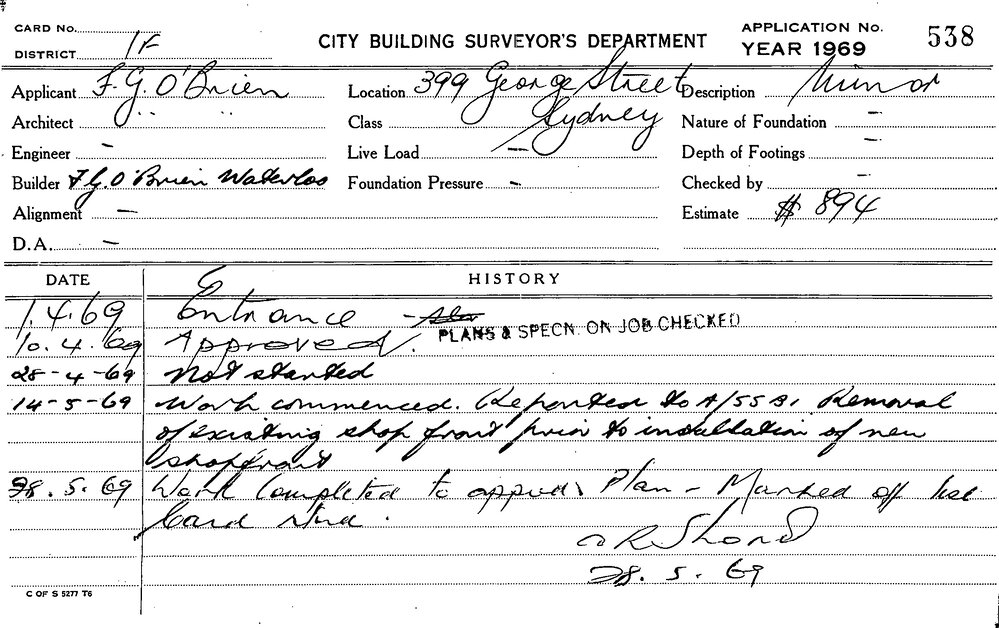 CARD No.
DISTRICT 1F
CITY BUILDING SURVEYOR'S DEPARTMENT
APPLICATION No. 538
YEAR 1969
Applicant F. G. O'Brien
Location 399 George Street
Sydney
Description Minor
Architect " "
Class
Nature of Foundation -
Engineer -
Live Load -
Depth of Footings -
Builder F.G. O'Brien Waterloo
Foundation Pressure -
Checked by -
Alignment -
Estimate $ 894
D.A. -
DATE HISTORY
1.4.69 Entrance -
PLANS & SPECN. ON JOB CHECKED
10.4.69 Approved.
28-4-69 Not started
14-5-69 Work commenced. Reported to A/SSB. Removal
of existing shop front prior to installation of new
shopfront
28.5.69 Work Completed to approved Plan - Marked off
Card
28.5.69
C OF S 5277 T6